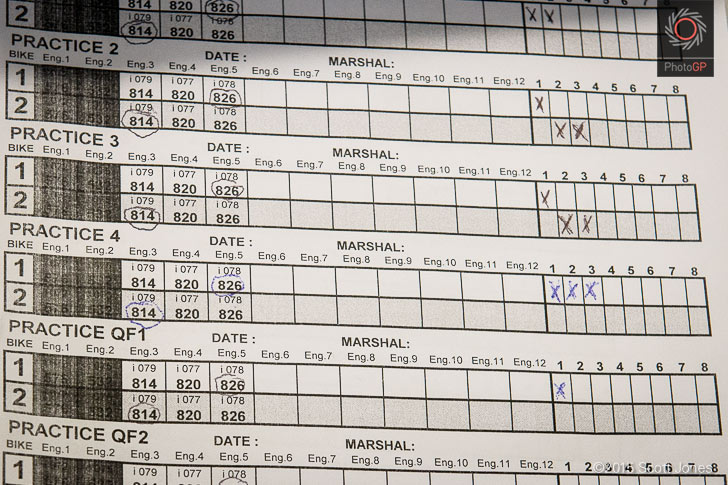 814 820 826
2 i 079 i 077 i 078 X X
814 820 826
PhotoGP
PRACTICE 2 DATE : MARSHAL:
BIKE Eng.1 Eng.2 Eng.3 Eng.4 Eng.5 Eng.6 Eng.7 Eng.8 Eng.9 Eng.10 Eng.11 Eng.12 1 2 3 4 5 6 7 8
1 i 079 i 077 i 078 X
814 820 826
2 i 079 i 077 i 078 X X
814 820 826
PRACTICE 3 DATE : MARSHAL:
BIKE Eng.1 Eng.2 Eng.3 Eng.4 Eng.5 Eng.6 Eng.7 Eng.8 Eng.9 Eng.10 Eng.11 Eng.12 1 2 3 4 5 6 7 8
1 i 079 i 077 i 078 X
814 820 826
2 i 079 i 077 i 078 X X
814 820 826
PRACTICE 4 DATE : MARSHAL:
BIKE Eng.1 Eng.2 Eng.3 Eng.4 Eng.5 Eng.6 Eng.7 Eng.8 Eng.9 Eng.10 Eng.11 Eng.12 1 2 3 4 5 6 7 8
1 i 079 i 077 i 078 X X X
814 820 826
2 i 079 i 077 i 078
814 820 826
PRACTICE QF1 DATE : MARSHAL:
BIKE Eng.1 Eng.2 Eng.3 Eng.4 Eng.5 Eng.6 Eng.7 Eng.8 Eng.9 Eng.10 Eng.11 Eng.12 1 2 3 4 5 6 7 8
1 i 079 i 077 i 078 X
814 820 826
2 i 079 i 077 i 078
814 820 826
PRACTICE QF2 DATE : MARSHAL:
BIKE Eng.1 Eng.2 Eng.3 Eng.4 Eng.5 Eng.6 Eng.7 Eng.8 Eng.9 Eng.10 Eng.11 Eng.12 1 2 3 4 5 6 7 8
1 i 079 i 077 i 078
814 820 826
Scott Jones